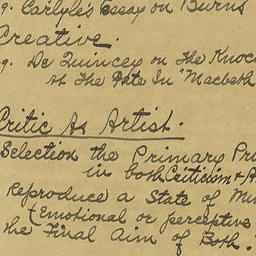 g. Carlyle's Essay on Burns
Creative.
g. De Quincey on The Knoc
at The Gate In "Macbeth
Critic As Artist.
Selection the Primary Pr
in both Criticism & A
Reproduce a State of Mi
(Emotional or perceptive
the Final Aim of Both.